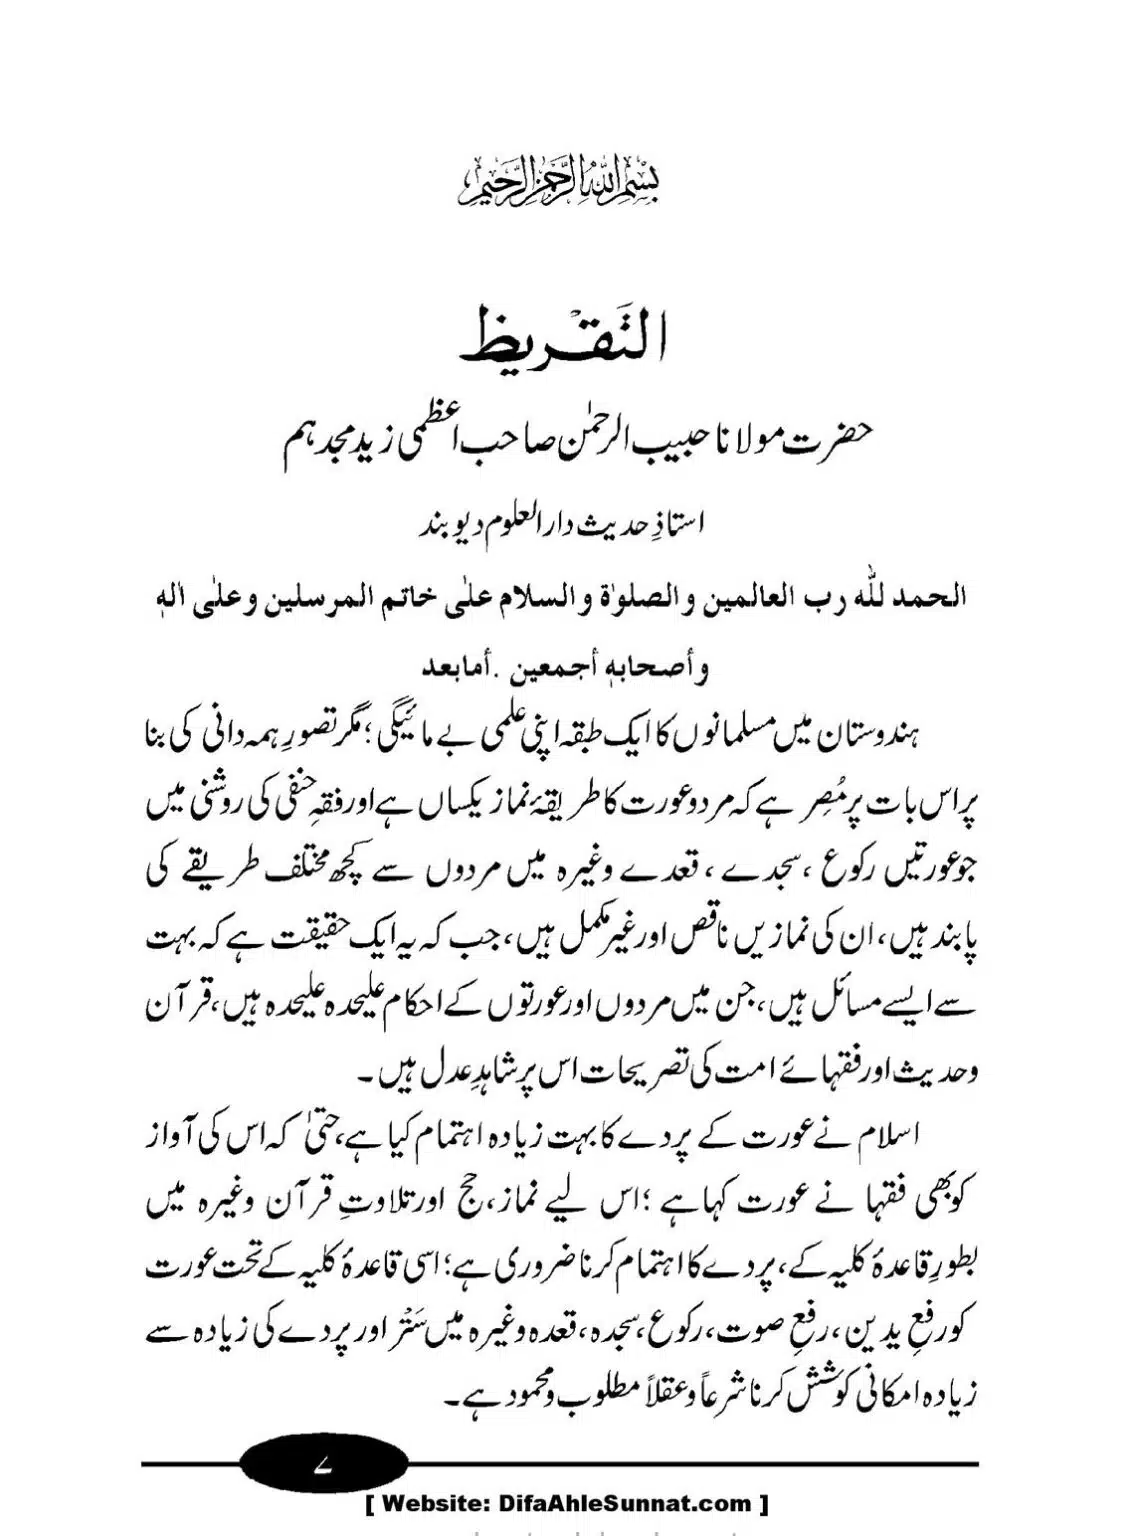 بسم اللہ الرحمن الرحیم
التقریظ
حضرت مولانا حبیب الرحمٰن صاحب اعظمی زید مجدہم
استاذِ حدیث دارالعلوم دیوبند
الحمد للّٰه رب العالمین والصلوٰۃ والسلام علٰی خاتم المرسلین وعلٰی اٰلهٖ
وأصحابهٖ أجمعین . أمابعد
ہندوستان میں مسلمانوں کا ایک طبقہ اپنی علمی بے مائیگی؛ مگر تصورِ ہمہ دانی کی بنا
پر اس بات پر مُصِر ہے کہ مرد و عورت کا طریقۂ نماز یکساں ہے اور فقہِ حنفی کی روشنی میں
جو عورتیں رکوع، سجدے، قعدے وغیرہ میں مردوں سے کچھ مختلف طریقے کی
پابند ہیں، ان کی نمازیں ناقص اور غیر مکمل ہیں، جب کہ یہ ایک حقیقت ہے کہ بہت
سے ایسے مسائل ہیں، جن میں مردوں اور عورتوں کے احکام علیٰحدہ علیٰحدہ ہیں، قرآن
وحدیث اور فقہائے امت کی تصریحات اس پر شاہدِ عدل ہیں۔
اسلام نے عورت کے پردے کا بہت زیادہ اہتمام کیا ہے، حتیٰ کہ اس کی آواز
کو بھی فقہا نے عورت کہا ہے؛ اس لیے نماز، حج اور تلاوتِ قرآن وغیرہ میں
بطورِ قاعدۂ کلیہ کے، پردے کا اہتمام کرنا ضروری ہے؛ اسی قاعدۂ کلیہ کے تحت عورت
کو رفعِ یدین، رفعِ صوت، رکوع، سجدہ، قعدہ وغیرہ میں سَتْر اور پردے کی زیادہ سے
زیادہ امکانی کوشش کرنا شرعاً وعقلاً مطلوب ومحمود ہے۔
۷
[ Website: DifaAhleSunnat.com ]